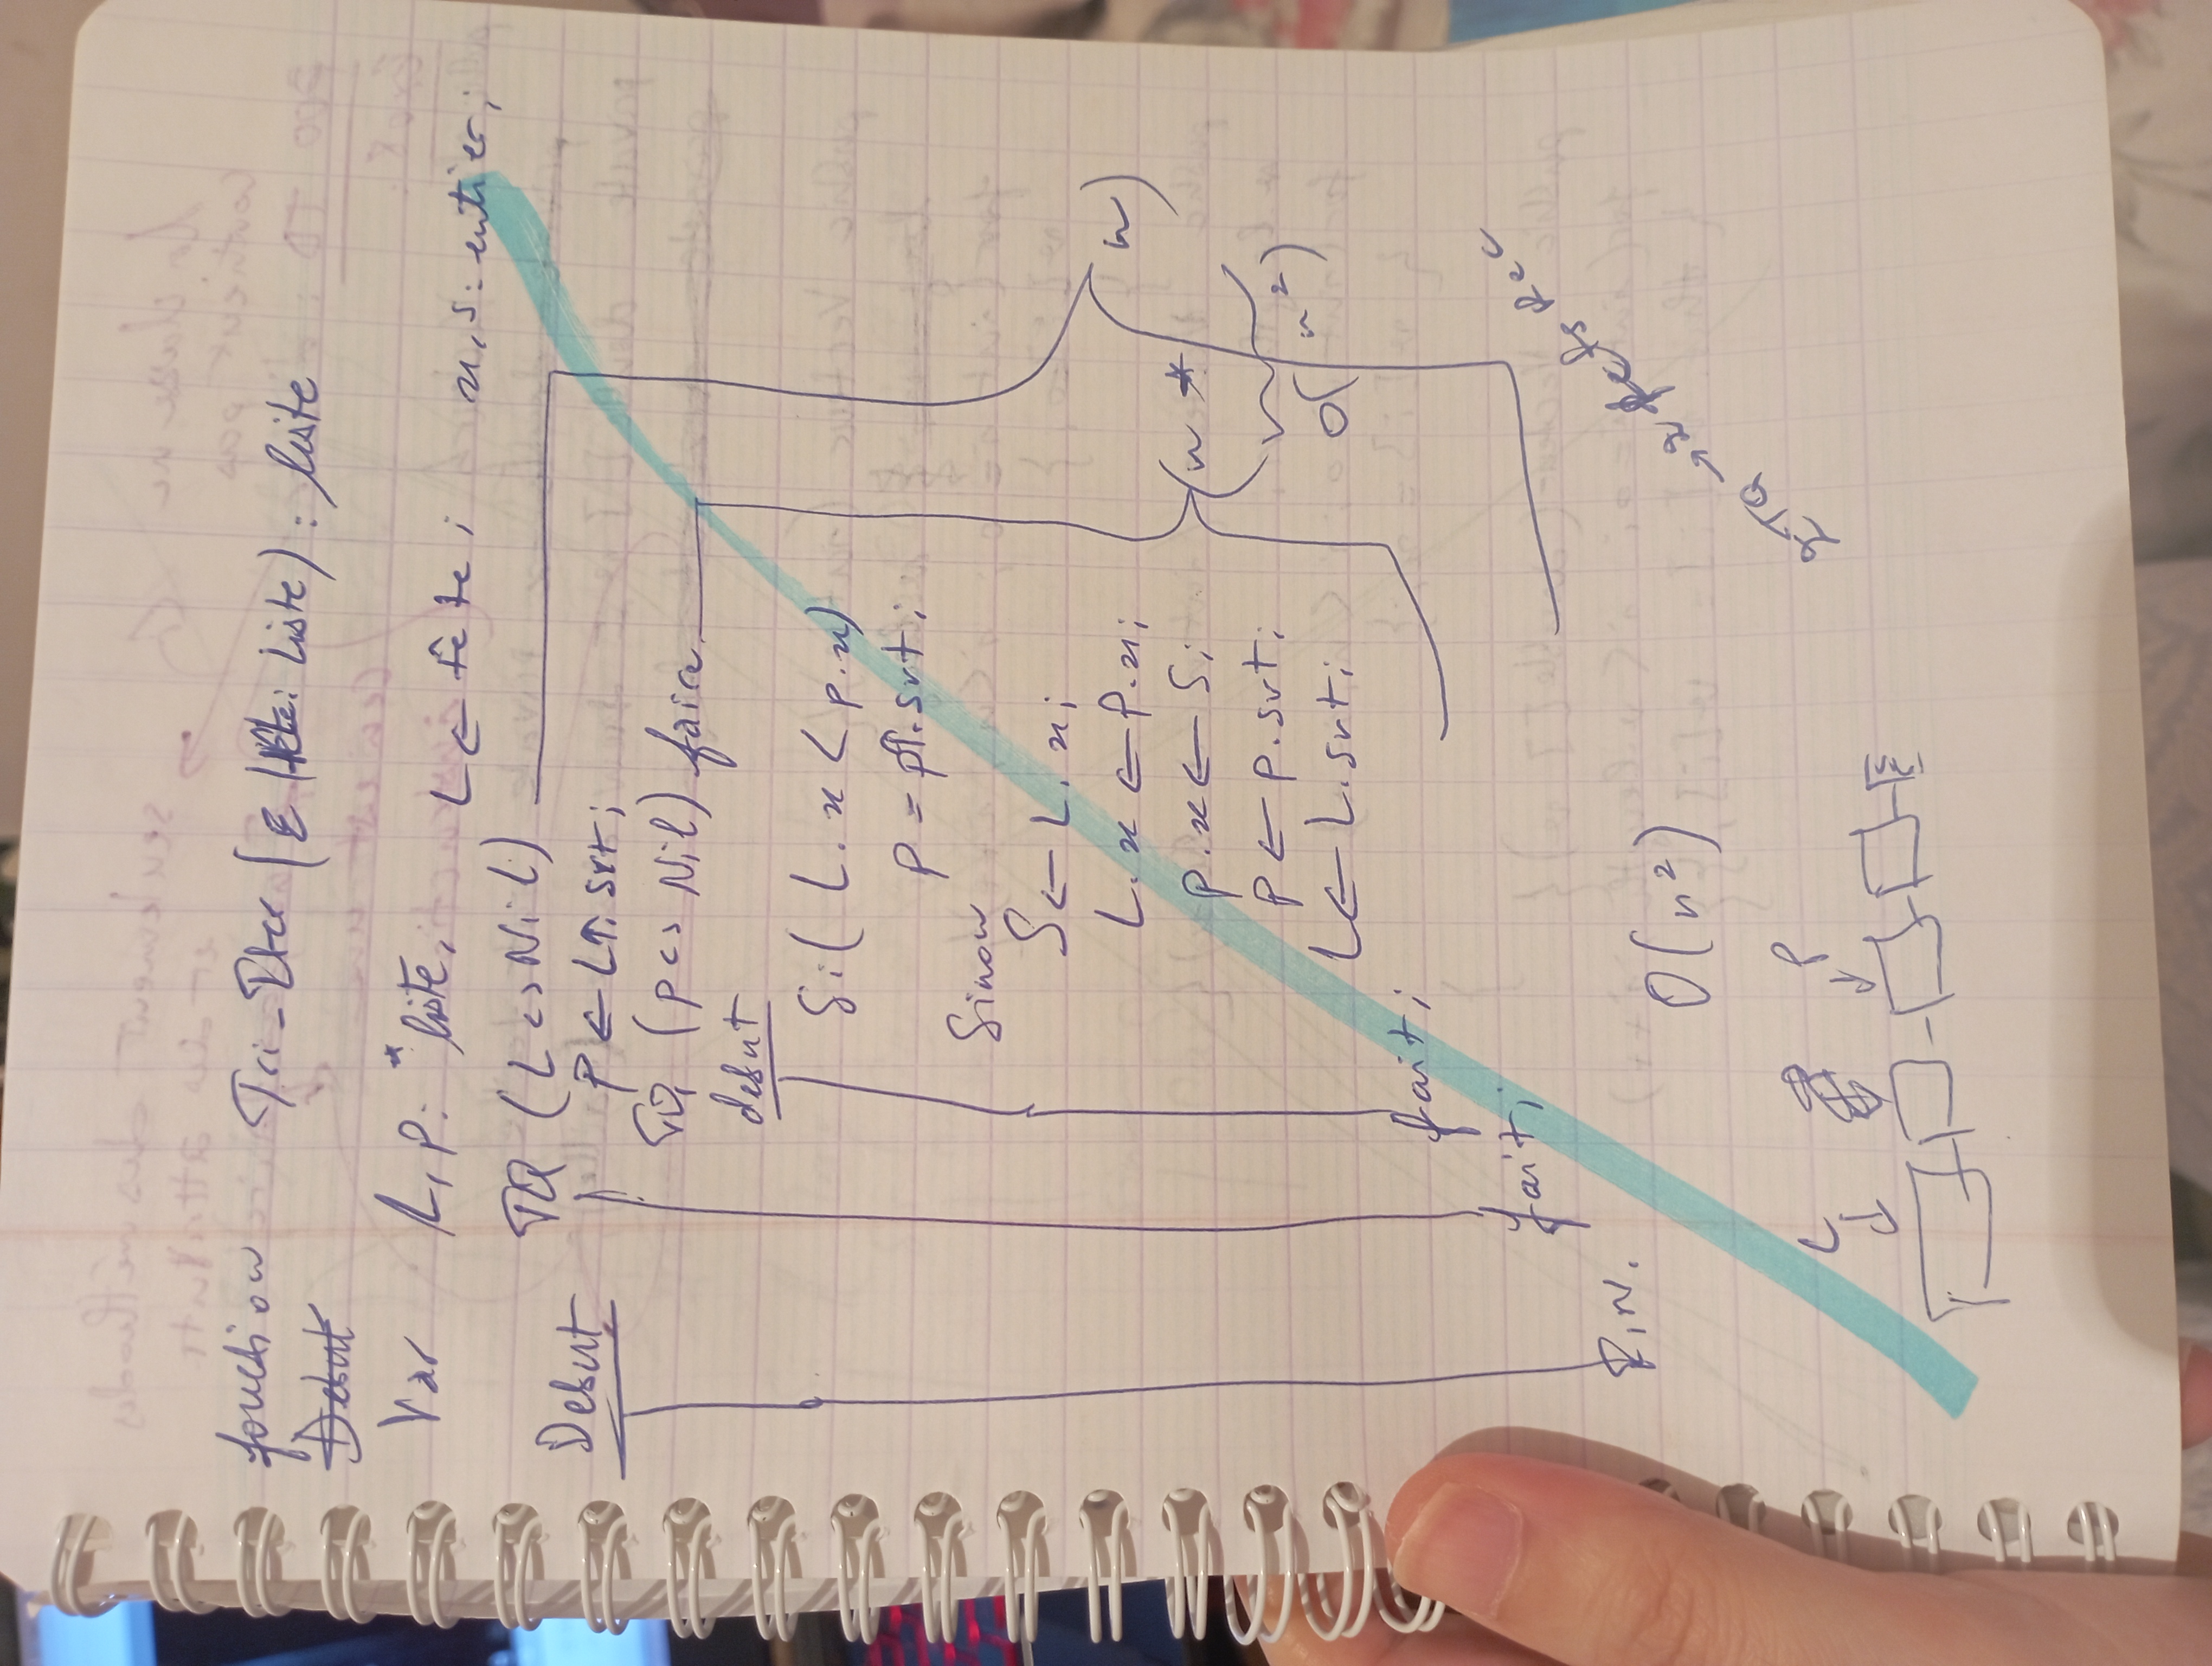 fonction Tri-Iter (E/ tête: Liste): liste
Debut
Var L, p: *liste, L ← tête; x, s: entier;
TQ (L <> Nil)
Debut
p ← L↑. svt;
TQ, (p <> Nil) faire
debut
Si( L. x < p. x)
p = p↑. svt;
Sinon
S ← L. x;
L. x ← p. x;
p. x ← S;
p ← p. svt;
L ← L. svt;
fait;
fait;
F.N.
(n *
n)
O( n²)
O(n²)
2 TQ → 2 Rec
L p